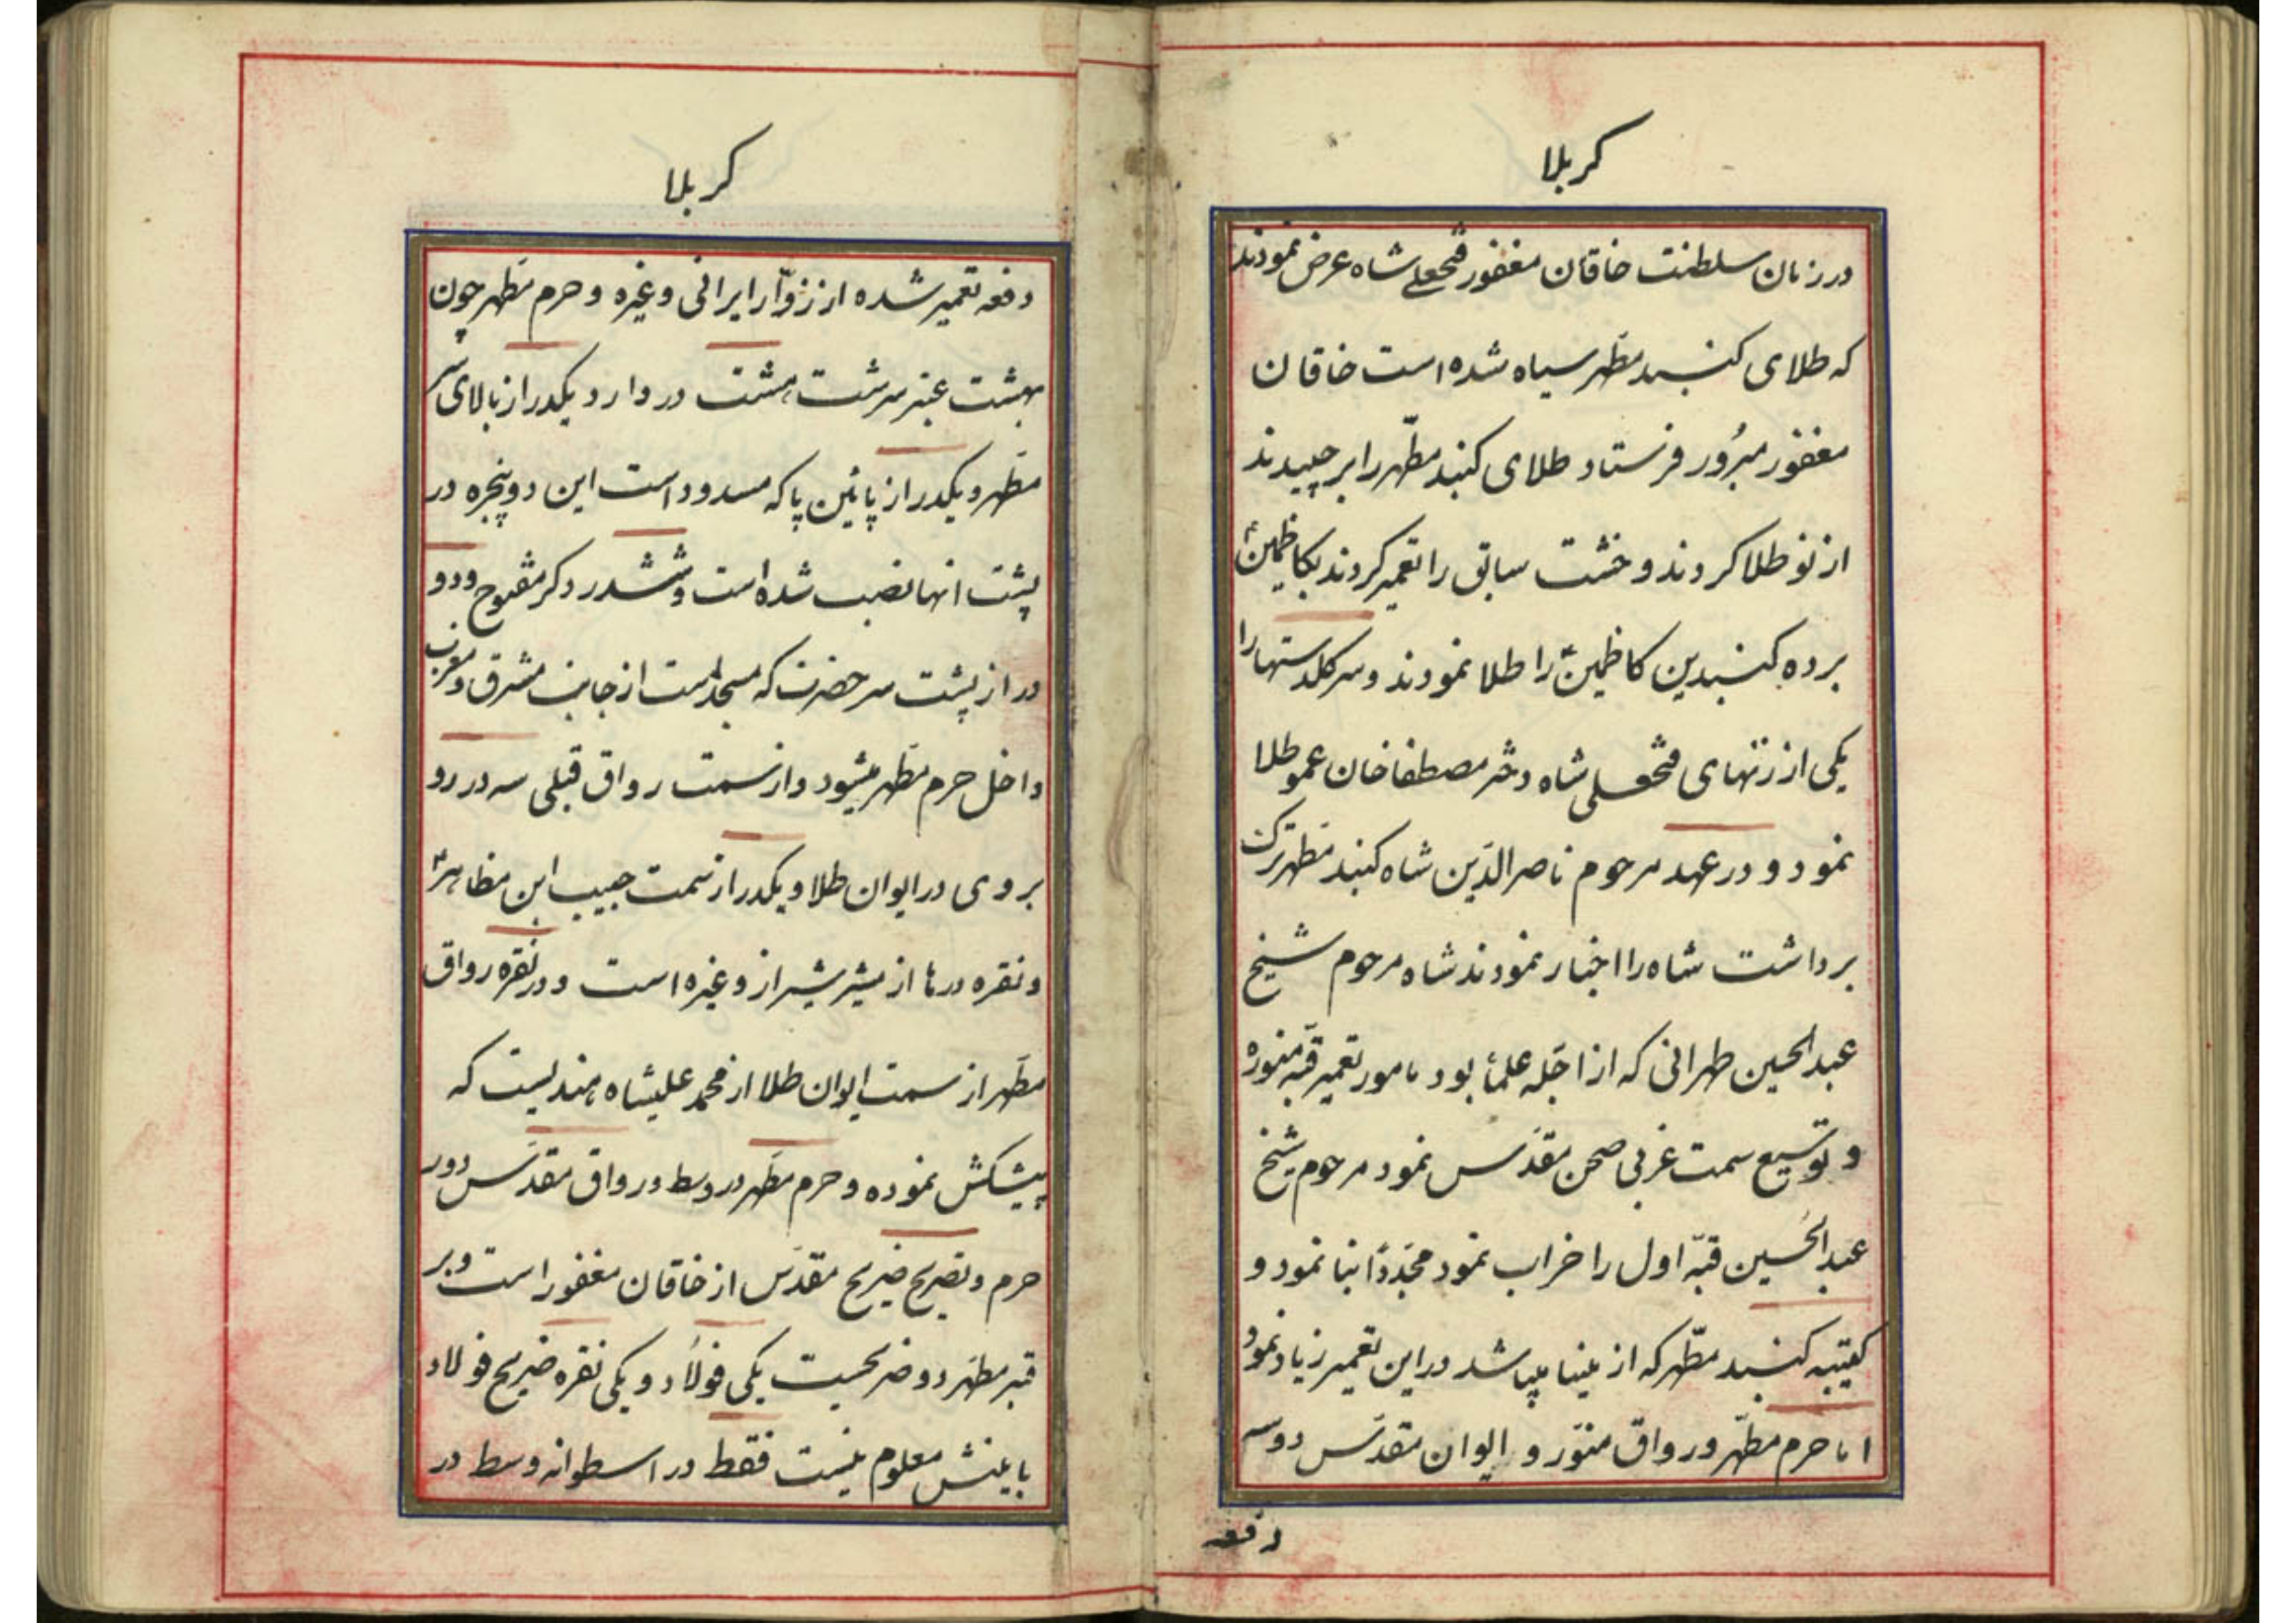 کربلا
در زمان سلطنت خاقان مغفور فتحعلی شاه عرض نمودند
که طلای کنبد مطهر سیاه شده است خاقان
مغفور مبرُور فرستاد طلای کنبد مطهّر را برچیدند
از نو طلا کردند و خشت سابق را تعمیر کردند بکاظمینؑ
برده کنبدین کاظمینؑ را طلا نمودند و سر کلدستها را
یکی از زنهای فتحعلی شاه دختر مصطفا خان عمو طلا
نمود و در عهد مرحوم ناصرالدّین شاه کنبد مطهر ترک
برداشت شاه را اخبار نمودند شاه مرحوم شیخ
عبدالحسین طهرانی که از اجّله علمأ بود مامور تعمیر قبّه منوره
و توسیع سمت غربی صحن مقدّس نمود مرحوم شیخ
عبدالحُسین قبّه اول را خراب نمود مجدّداً بنا نمود و
کتیبه کنبد مطّهر که از مینا میباشد در این تعمیر زیاد نمود
اما حرم مطّهر و رواق منوّر و ایوان مقدّس دو سه
دفعه
کربلا
دفعه تعمیر شده از زوّار ایرانی و غیره و حرم مطهر چون
بهشت عنبر سرشت هشت در دارد یکدر از بالای سر
مطهر و یکدر از پائین پا که مسدود است این دو پنجره در
پشت انها نصب شده است و شش در دکر مفتوح و دو
در از پشت سر حضرت که مسجد است از جانب مشرق و مغرب
داخل حرم مطّهر میشود و از سمت رواق قبلی سه در رو
بروی در ایوان طلا و یکدر از سمت حبیب ابن مظاهرؑ
و نقره درها از مشیر شیراز و غیره است و در نقره رواق
مطّهر از سمت ایوان طلا از محمد علیشاه هندیست که
پیشکش نموده و حرم مطّهر در وسط و رواق مقدّس دور
حرم و تصریح ضریح مقدّس از خاقان مغفور است و بر
قبر مطهّر دو ضریحیست یکی فولاد و یکی نقره ضریح فولاد
بانیش معلوم نیست فقط در اسطوانه وسط در